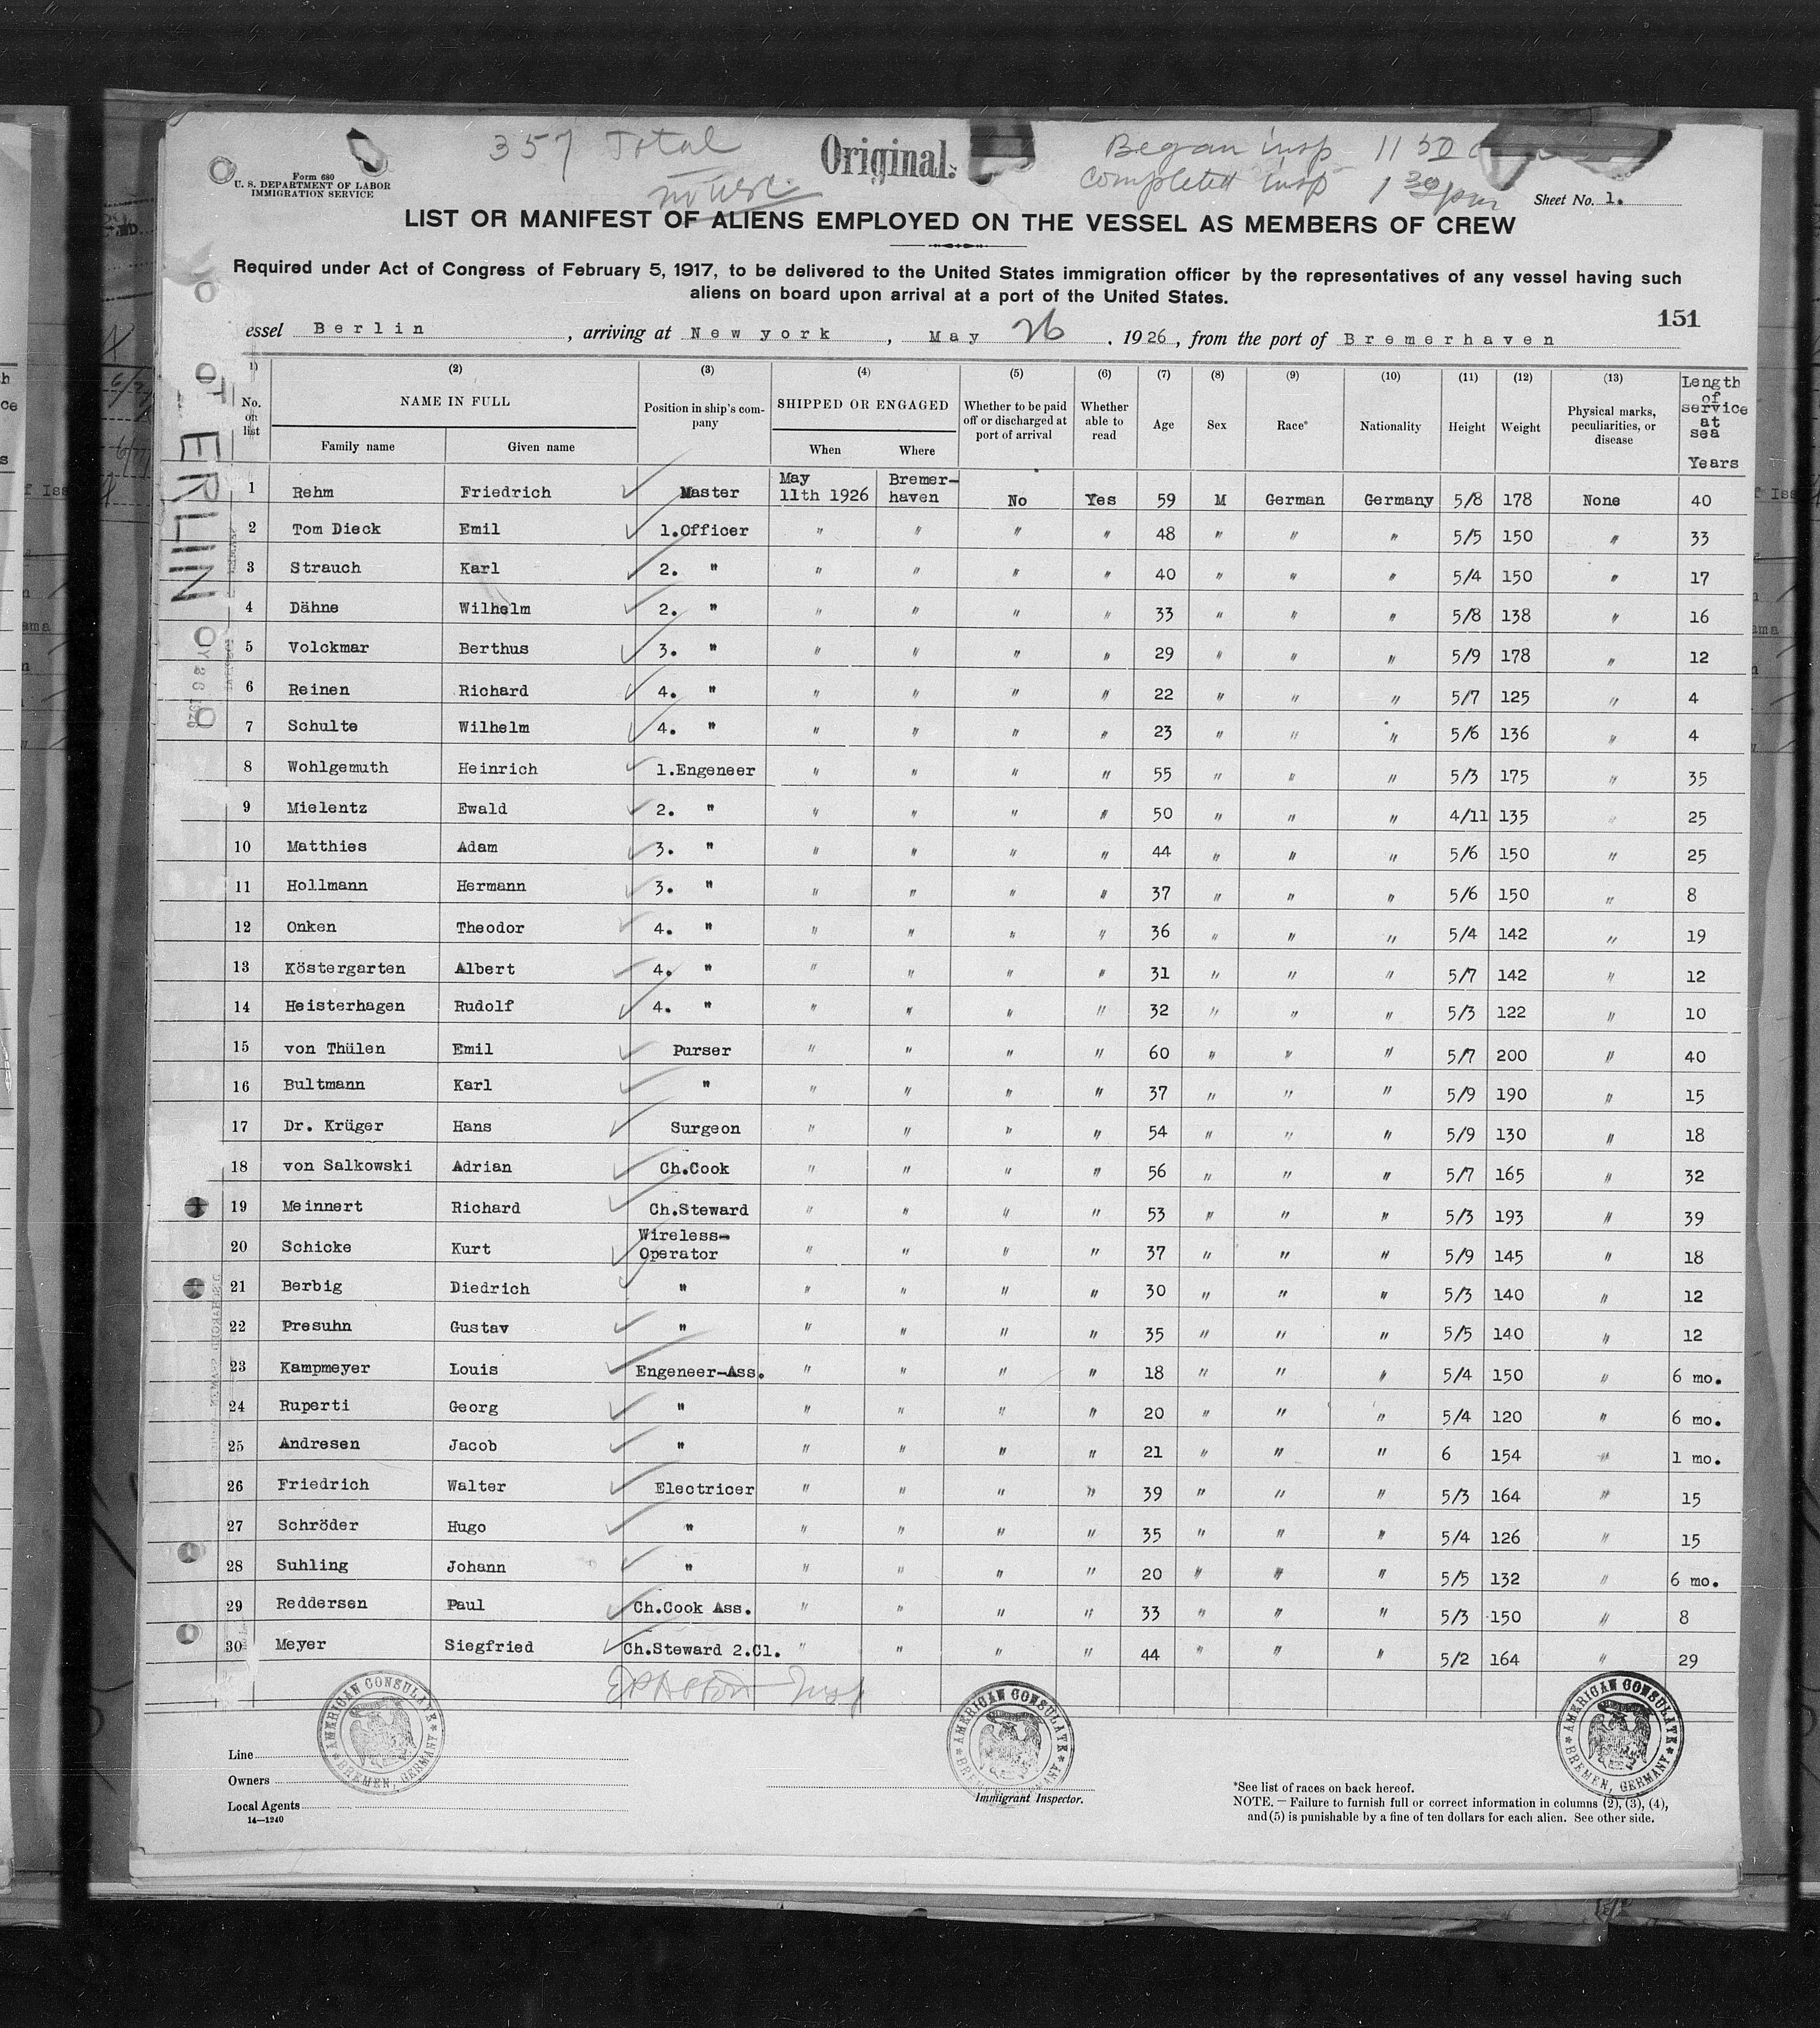 357 Total
Original.
Began insp 11 50
completed insp 1 30 pm
Form 680
U. S. DEPARTMENT OF LABOR
IMMIGRATION SERVICE
Sheet No. 1.
LIST OR MANIFEST OF ALIENS EMPLOYED ON THE VESSEL AS MEMBERS OF CREW
Required under Act of Congress of February 5, 1917, to be delivered to the United States immigration officer by the representatives of any vessel having such
aliens on board upon arrival at a port of the United States.
151
essel Berlin , arriving at New york , May 26 . 1926 , from the port of Bremerhaven
(2) (3) (4) (5) (6) (7) (8) (9) (10) (11) (12) (13)
No. on list NAME IN FULL Family name Given name Position in ship's company SHIPPED OR ENGAGED When Where Whether to be paid off or discharged at port of arrival Whether able to read Age Sex Race* Nationality Height Weight Physical marks, peculiarities, or disease Length of service at sea Years
1 Rehm Friedrich Master May 11th 1926 Bremer-haven No Yes 59 M German Germany 5/8 178 None 40
2 Tom Dieck Emil 1.Officer " " " " 48 " " " 5/5 150 " 33
3 Strauch Karl 2. " " " " " 40 " " " 5/4 150 " 17
4 Dähne Wilhelm 2. " " " " " 33 " " " 5/8 138 " 16
5 Volckmar Berthus 3. " " " " " 29 " " " 5/9 178 " 12
6 Reinen Richard 4. " " " " " 22 " " " 5/7 125 " 4
7 Schulte Wilhelm 4. " " " " " 23 " " " 5/6 136 " 4
8 Wohlgemuth Heinrich 1.Engeneer " " " " 55 " " " 5/3 175 " 35
9 Mielentz Ewald 2. " " " " " 50 " " " 4/11 135 " 25
10 Matthies Adam 3. " " " " " 44 " " " 5/6 150 " 25
11 Hollmann Hermann 3. " " " " " 37 " " " 5/6 150 " 8
12 Onken Theodor 4. " " " " " 36 " " " 5/4 142 " 19
13 Köstergarten Albert 4. " " " " " 31 " " " 5/7 142 " 12
14 Heisterhagen Rudolf 4. " " " " " 32 " " " 5/3 122 " 10
15 von Thülen Emil Purser " " " " 60 " " " 5/7 200 " 40
16 Bultmann Karl " " " " " 37 " " " 5/9 190 " 15
17 Dr. Krüger Hans Surgeon " " " " 54 " " " 5/9 130 " 18
18 von Salkowski Adrian Ch.Cook " " " " 56 " " " 5/7 165 " 32
19 Meinnert Richard Ch.Steward " " " " 53 " " " 5/3 193 " 39
20 Schicke Kurt Wireless-Operator " " " " 37 " " " 5/9 145 " 18
21 Berbig Diedrich " " " " " 30 " " " 5/3 140 " 12
22 Presuhn Gustav " " " " " 35 " " " 5/5 140 " 12
23 Kampmeyer Louis Engeneer-Ass. " " " " 18 " " " 5/4 150 " 6 mo.
24 Ruperti Georg " " " " " 20 " " " 5/4 120 " 6 mo.
25 Andresen Jacob " " " " " 21 " " " 6 154 " 1 mo.
26 Friedrich Walter Electricer " " " " 39 " " " 5/3 164 " 15
27 Schröder Hugo " " " " " 35 " " " 5/4 126 " 15
28 Suhling Johann " " " " " 20 " " " 5/5 132 " 6 mo.
29 Reddersen Paul Ch.Cook Ass. " " " " 33 " " " 5/3 150 " 8
30 Meyer Siegfried Ch.Steward 2.Cl. " " " " 44 " " " 5/2 164 " 29
AMERICAN CONSULATE BREMEN, GERMANY
AMERICAN CONSULATE BREMEN, GERMANY
AMERICAN CONSULATE BREMEN, GERMANY
Line
Owners
Local Agents
14—1240
Immigrant Inspector.
*See list of races on back hereof.
NOTE. — Failure to furnish full or correct information in columns (2), (3), (4),
and (5) is punishable by a fine of ten dollars for each alien. See other side.